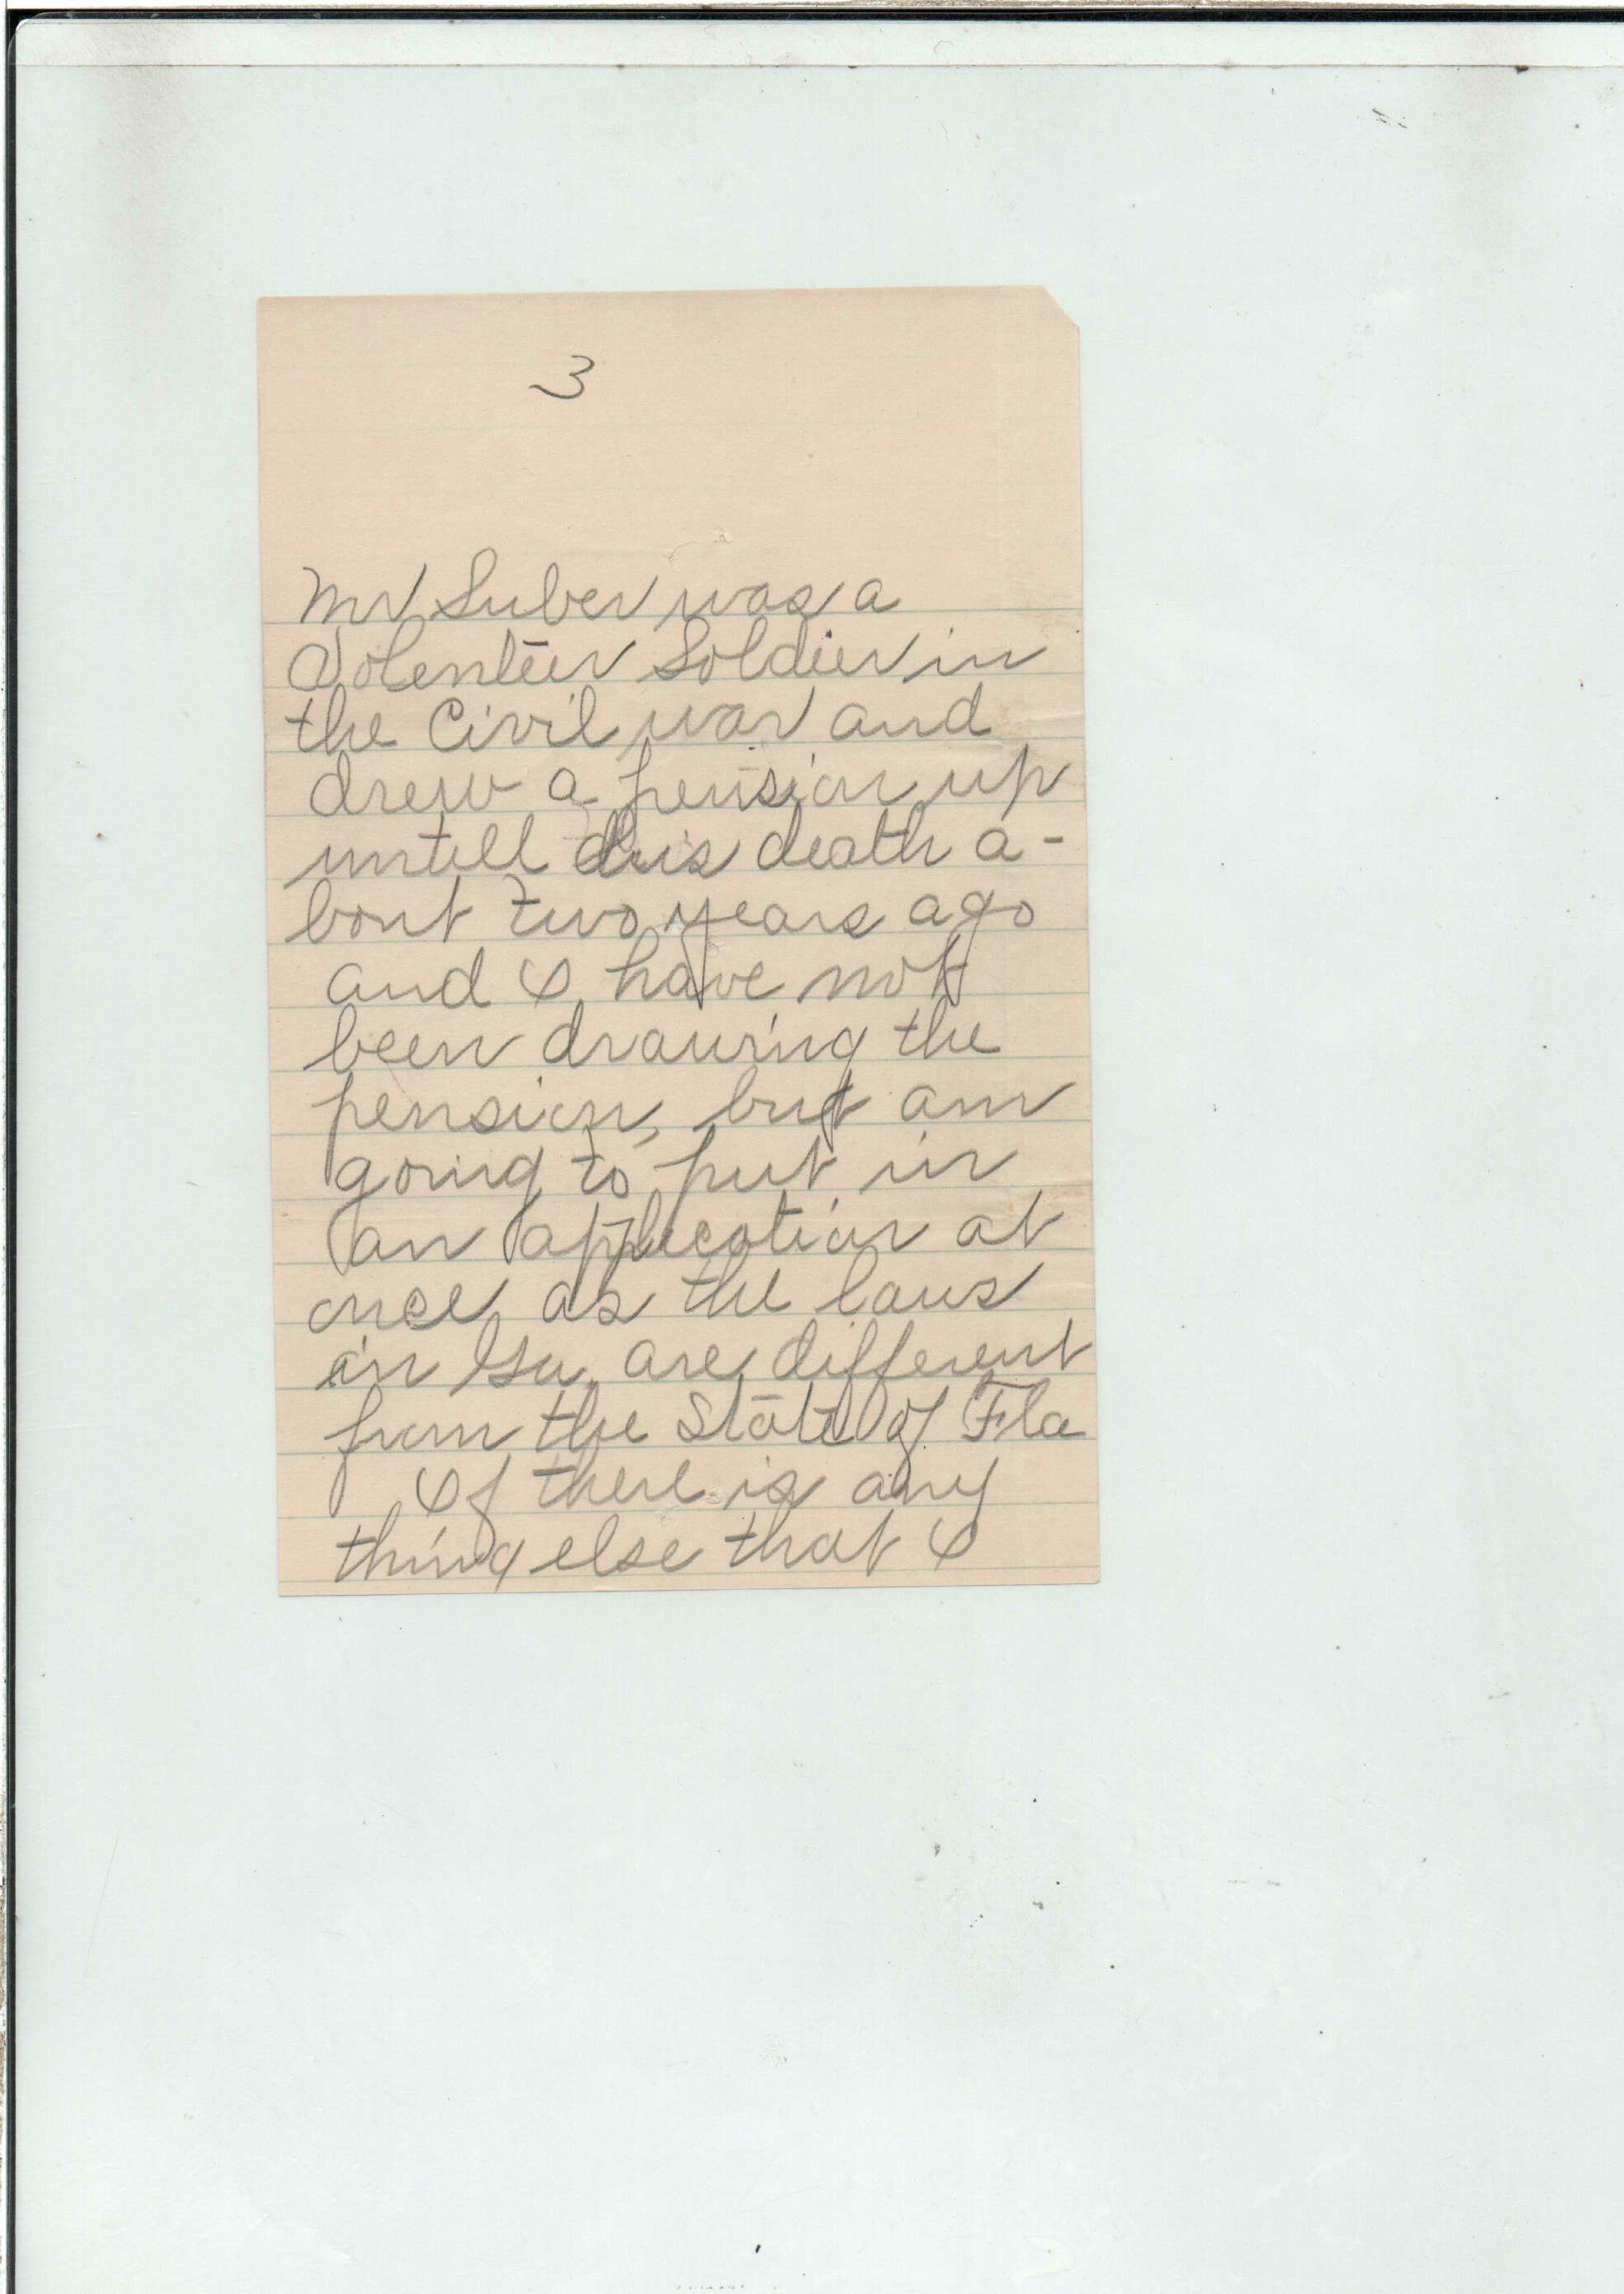 3
Mr Suber was a
Volenteer Soldier in
the Civil war and
drew a pension up
untell his death a-
bout two years ago
and I have not
been drawing the
pension, but am
going to put in
an application at
once as the laws
in Ga. are different
from the State of Fla
If there is any
thing else that I